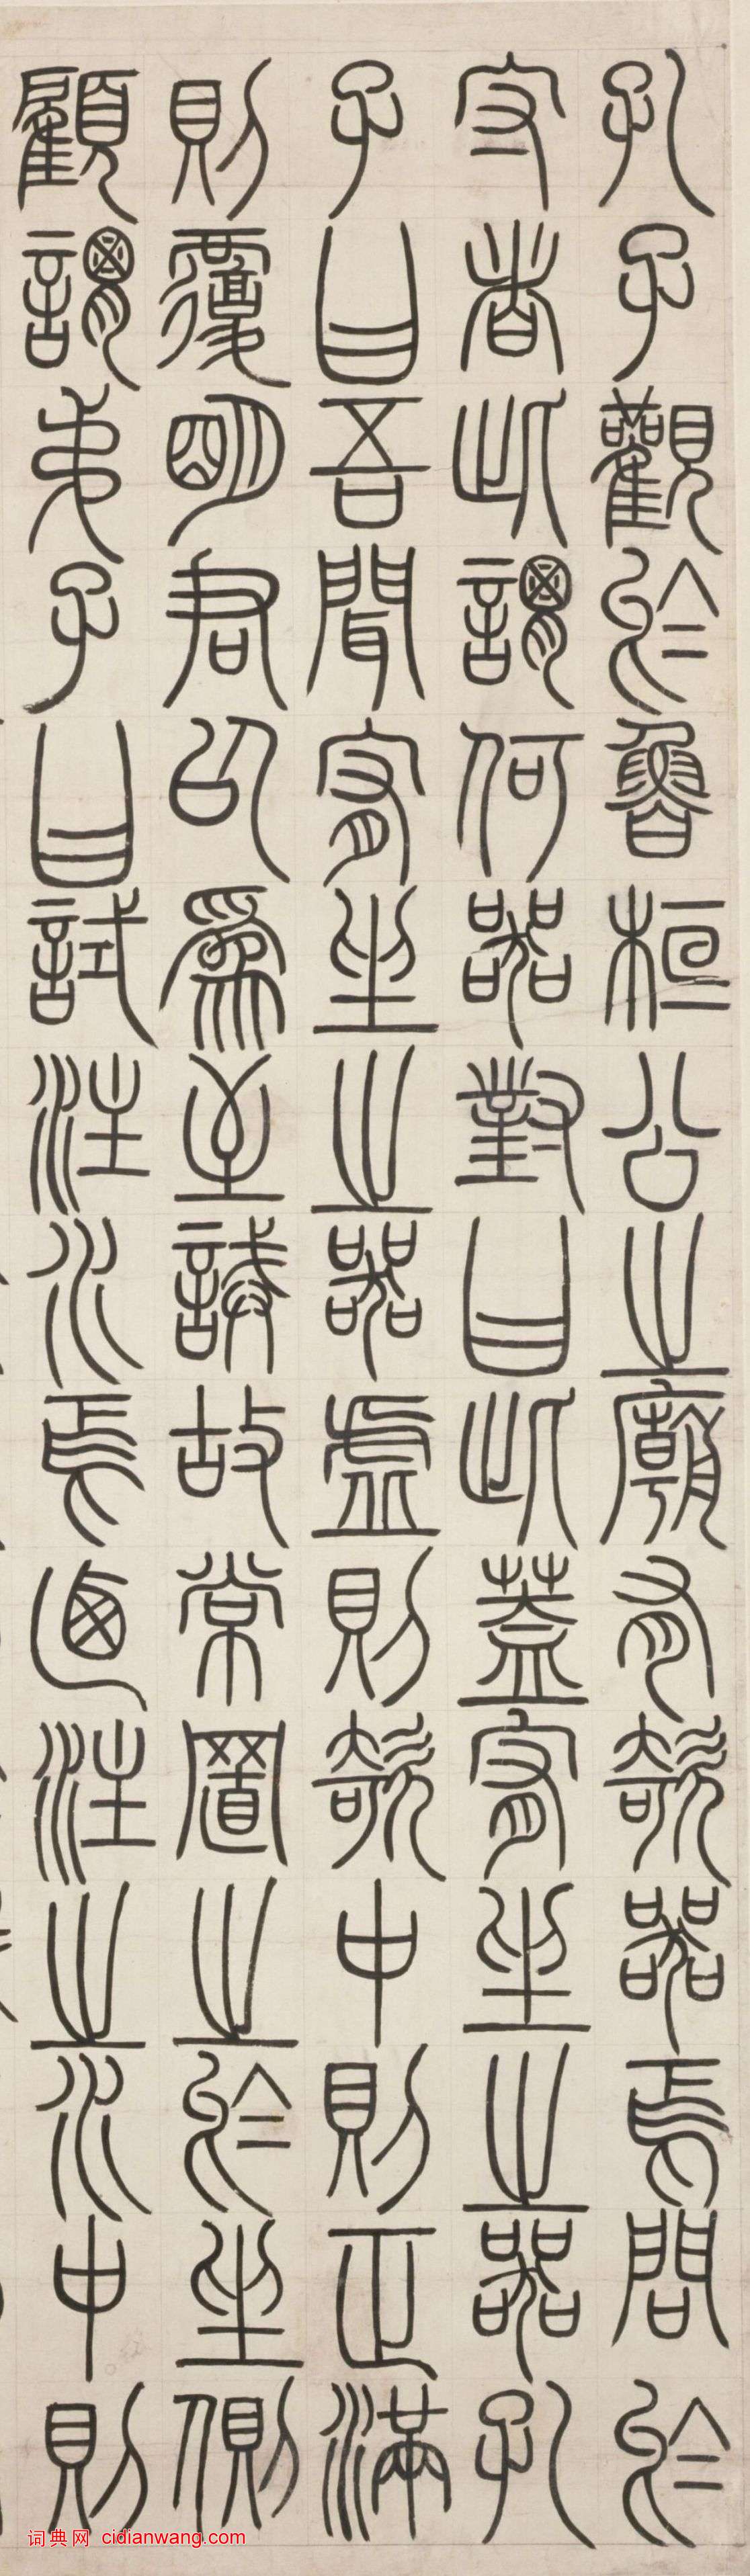 孔子觀於魯桓公之廟有欹器焉問於
守者此謂何器對曰此蓋宥坐之器孔
子曰吾聞宥坐之器虛則欹中則正滿
則覆明君以為至誡故常置之於坐側
顧謂弟子曰試注水焉迺注之水中則
词典网 cidianwang.com